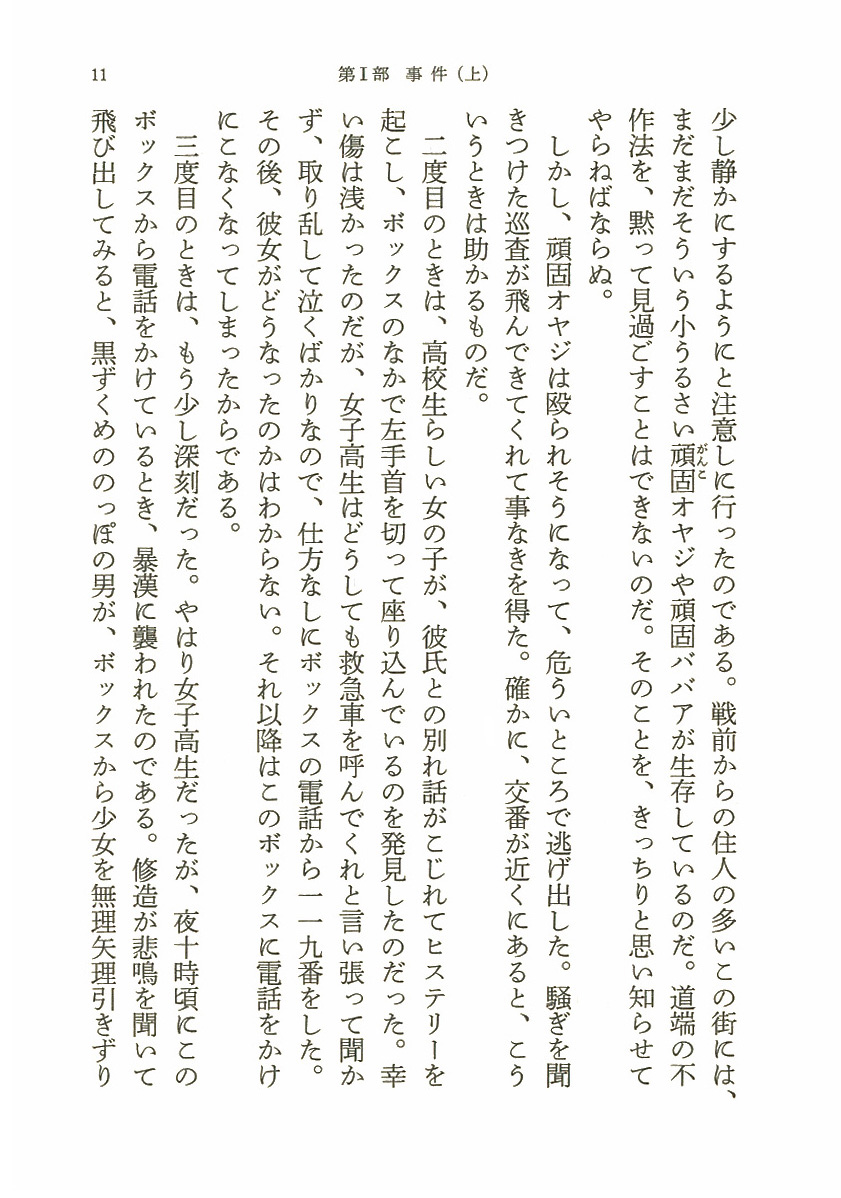 11
第Ⅰ部 事件（上）
少し静かにするようにと注意しに行ったのである。戦前からの住人の多いこの街には、
まだまだそういう小うるさい頑固オヤジや頑固ババアが生存しているのだ。道端の不
がんこ
作法を、黙って見過ごすことはできないのだ。そのことを、きっちりと思い知らせて
やらねばならぬ。
しかし、頑固オヤジは殴られそうになって、危ういところで逃げ出した。騒ぎを聞
きつけた巡査が飛んできてくれて事なきを得た。確かに、交番が近くにあると、こう
いうときは助かるものだ。
二度目のときは、高校生らしい女の子が、彼氏との別れ話がこじれてヒステリーを
起こし、ボックスのなかで左手首を切って座り込んでいるのを発見したのだった。幸
い傷は浅かったのだが、女子高生はどうしても救急車を呼んでくれと言い張って聞か
ず、取り乱して泣くばかりなので、仕方なしにボックスの電話から一一九番をした。
その後、彼女がどうなったのかはわからない。それ以降はこのボックスに電話をかけ
にこなくなってしまったからである。
三度目のときは、もう少し深刻だった。やはり女子高生だったが、夜十時頃にこの
ボックスから電話をかけているとき、暴漢に襲われたのである。修造が悲鳴を聞いて
飛び出してみると、黒ずくめののっぽの男が、ボックスから少女を無理矢理引きずり